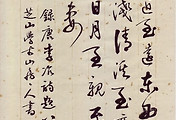 至遠東西
淺清溪至
明日月至親至
妻
錄唐李冶詩
芝山學古山房人書